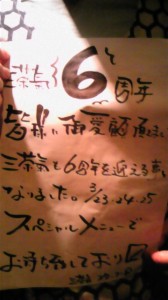 三茶気 6周年
皆様に御愛顧頂き
三茶気も6周年を迎える事に
なりました。3/23.24.25
スペシャルメニューで
お待ちしており〼